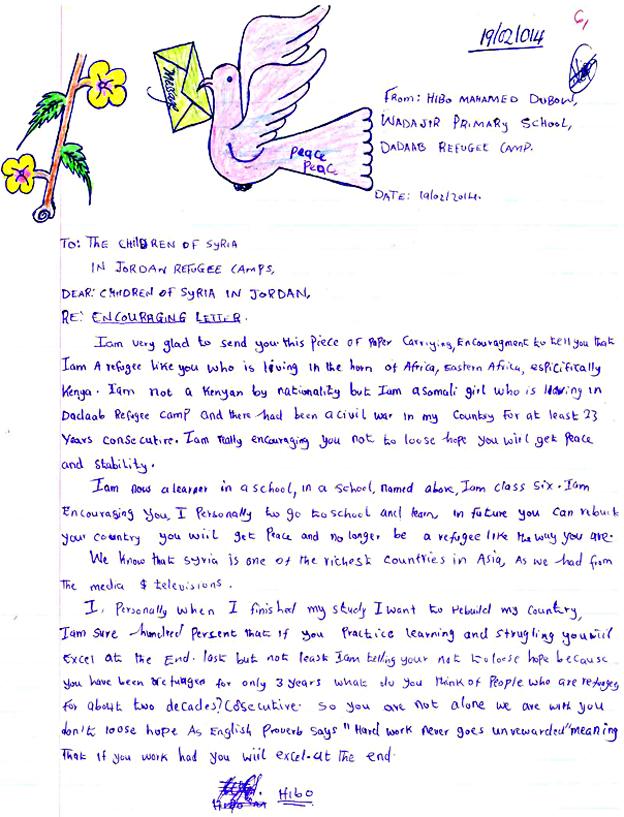 6,
19/02/014
Message
Peace
Peace
From: HIBO MAHAMED DUBOW,
WADAJIR PRIMARY SCHOOL,
DADAAB REFUGEE CAMP.
DATE: 19/02/2014.
TO: THE CHILDREN OF SYRIA
IN JORDAN REFUGEE CAMPS,
DEAR: CHILDREN OF SYRIA IN JORDAN,
RE: ENCOURAGING LETTER.
Iam very glad to send you this Piece of Paper Carrying, Encouragment to tell you that
Iam A refugee like you who is living in the horn of Africa, Eastern Africa, espicifically
Kenya. Iam not a Kenyan by nationality but Iam a somali girl who is living in
Dadaab Refugee Camp and there had been a civil war in my Country for at least 23
Years consecutive. Iam really encouraging you not to loose hope you will get Peace
and stability.
Iam now a learner in a school, in a school, named above, Iam class six. Iam
Encouraging You, I Personally to go to school and learn, in future you can rebuild
your country you wiil get Peace and no longer be a refugee like the way you are.
We know that Syria is one of the richest countries in Asia, As we had from
The media $ televisions.
I, Personally when I finished my study I want to rebuild my Country,
Iam sure hundred Percent that if you Practice learning and strugling you wiil
Excel at the End. last but not least Iam telling your not to loose hope because
You have been refuges for only 3 years what do you think of People who are refuges
for about two decades? Cosecutive. So you are not alone we are with you
don't loose hope As English Proverb says "Hard work never goes unrewarded" meaning
That if you work had you wiil excel at the end.
HIBO